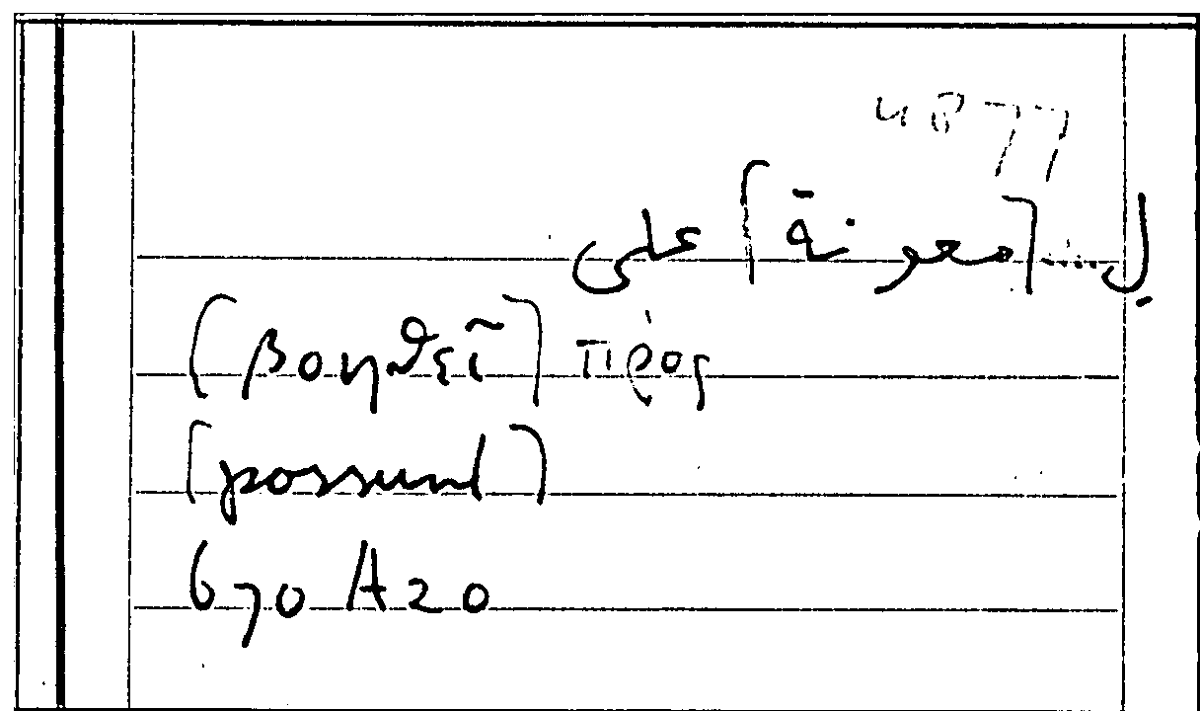 4877
لـ.....[معونة] على
(βοηθεῖ) πρὸς
(possunt)
670 A20